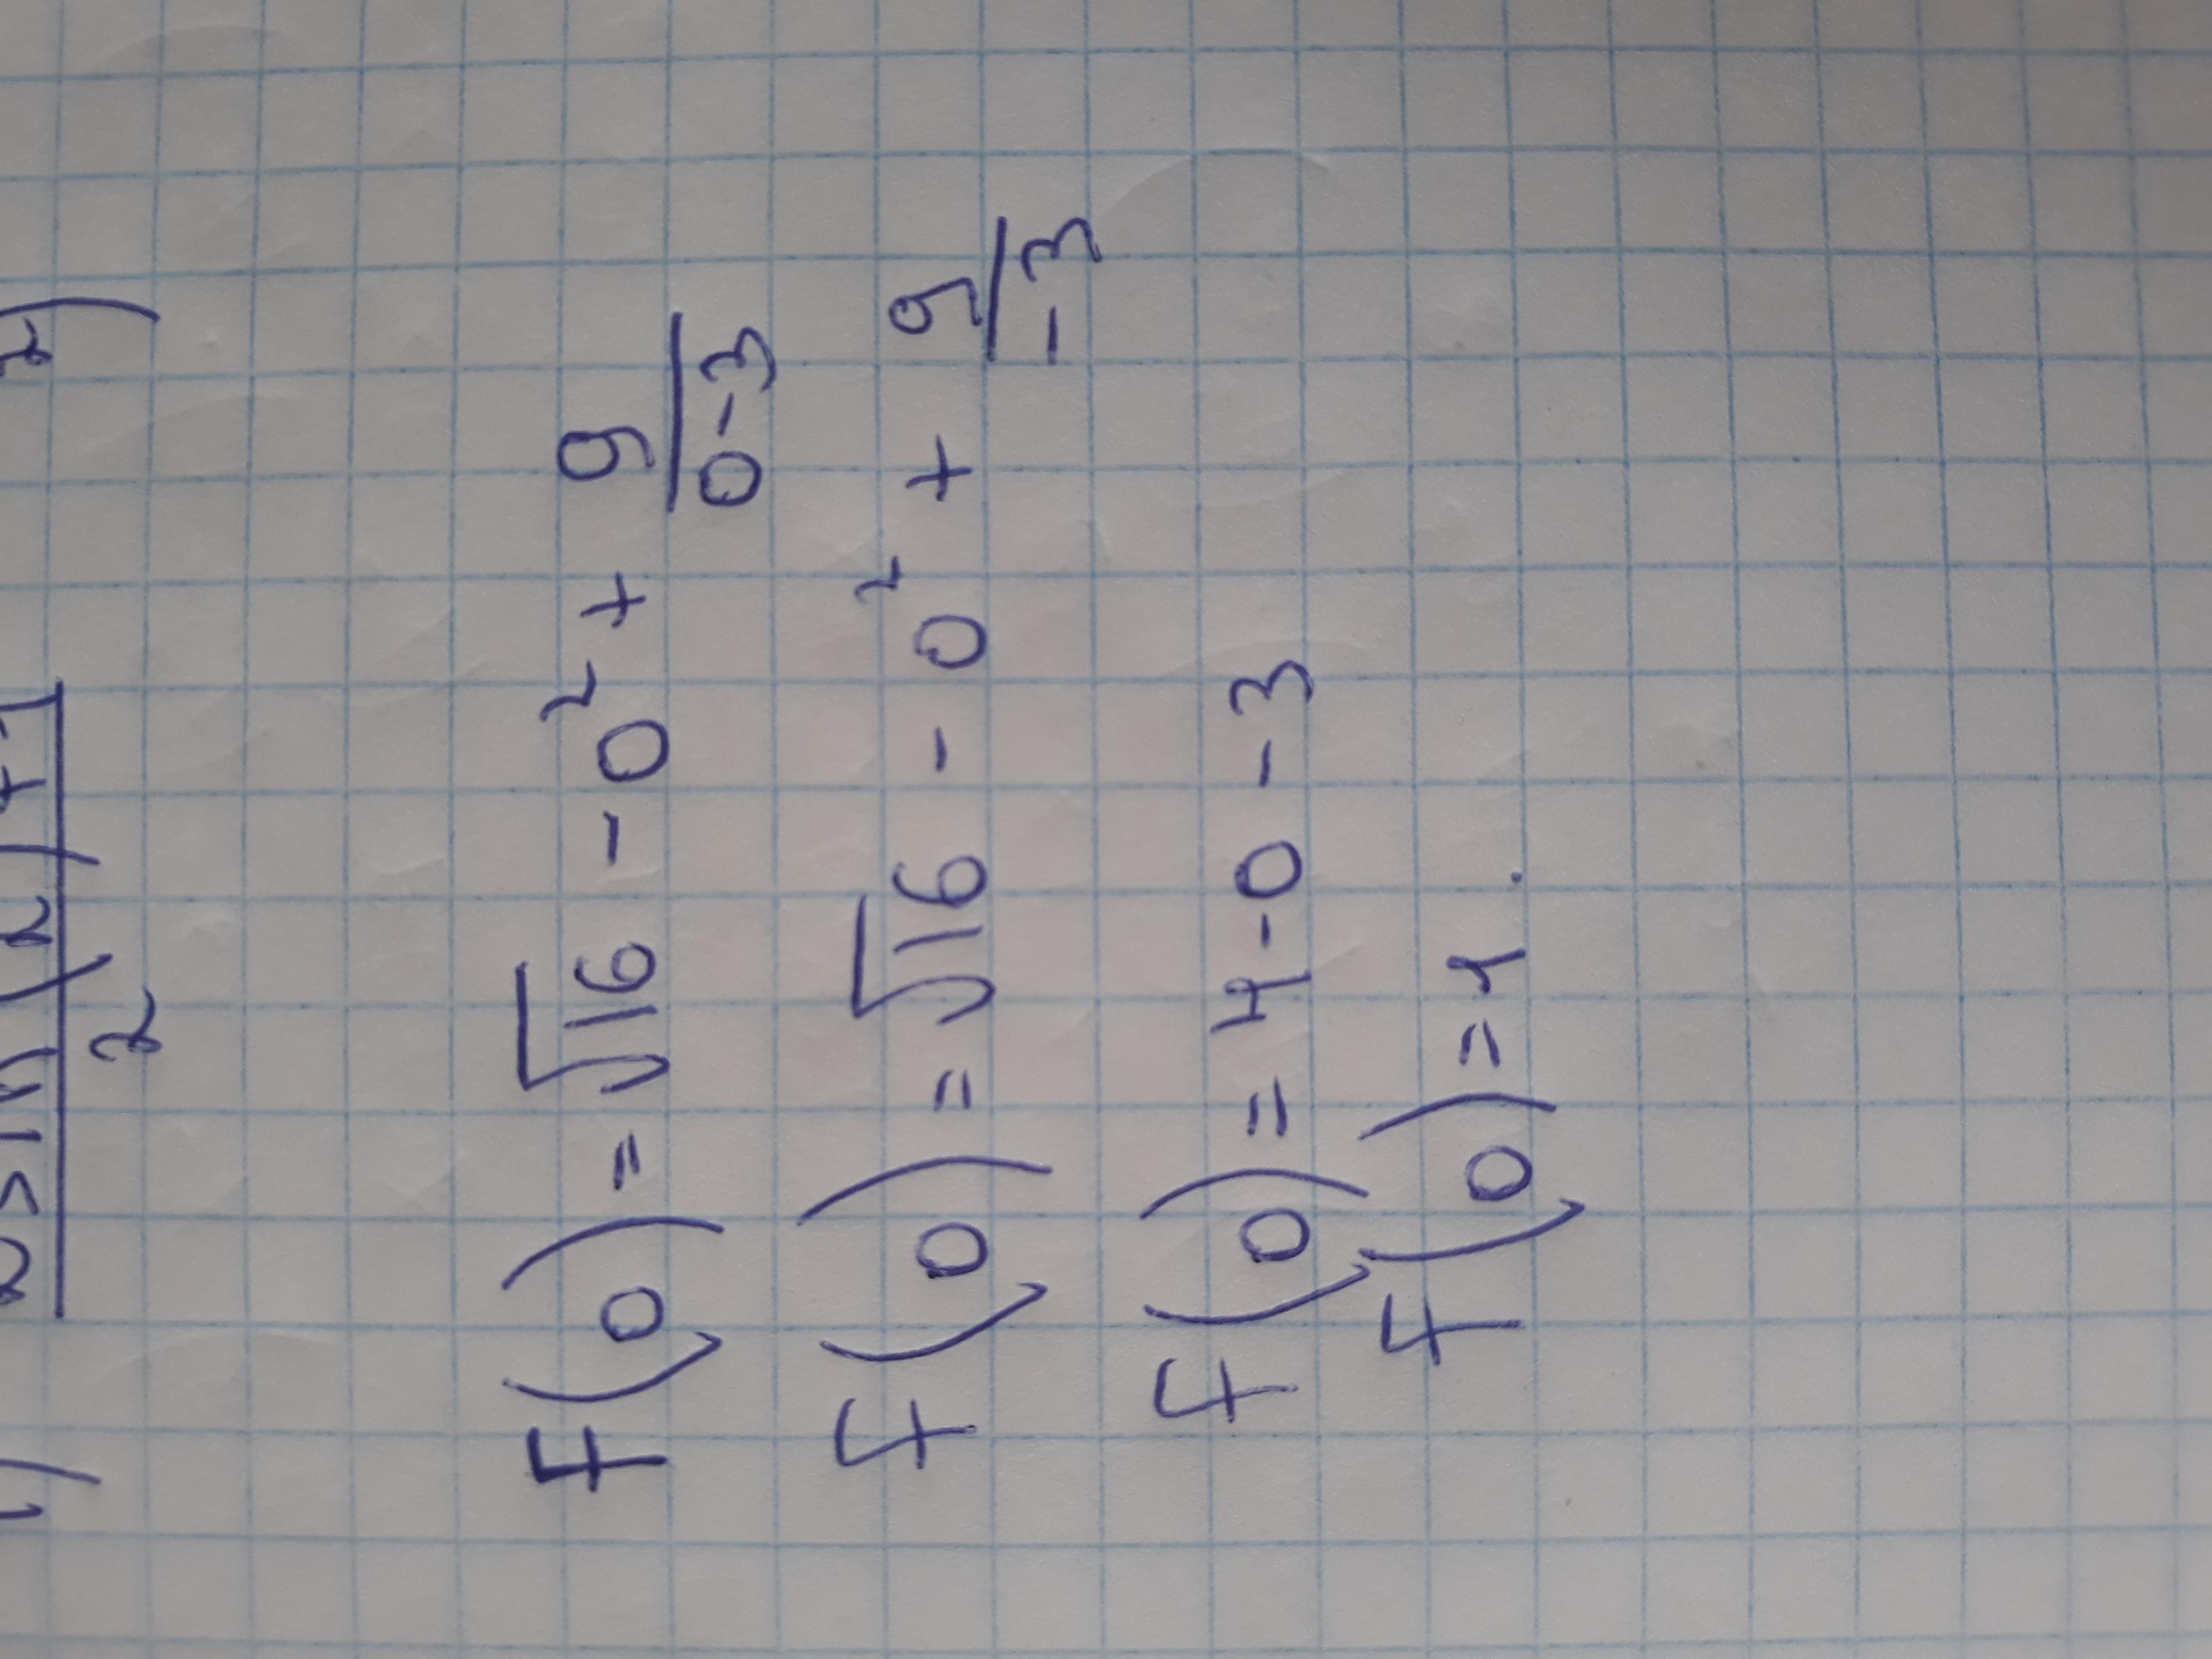 F(0) = √16 - 0² + 9/(0-3)
F(0) = √16 - 0² + 9/-3
F(0) = 4-0-3
F(0) = 1.